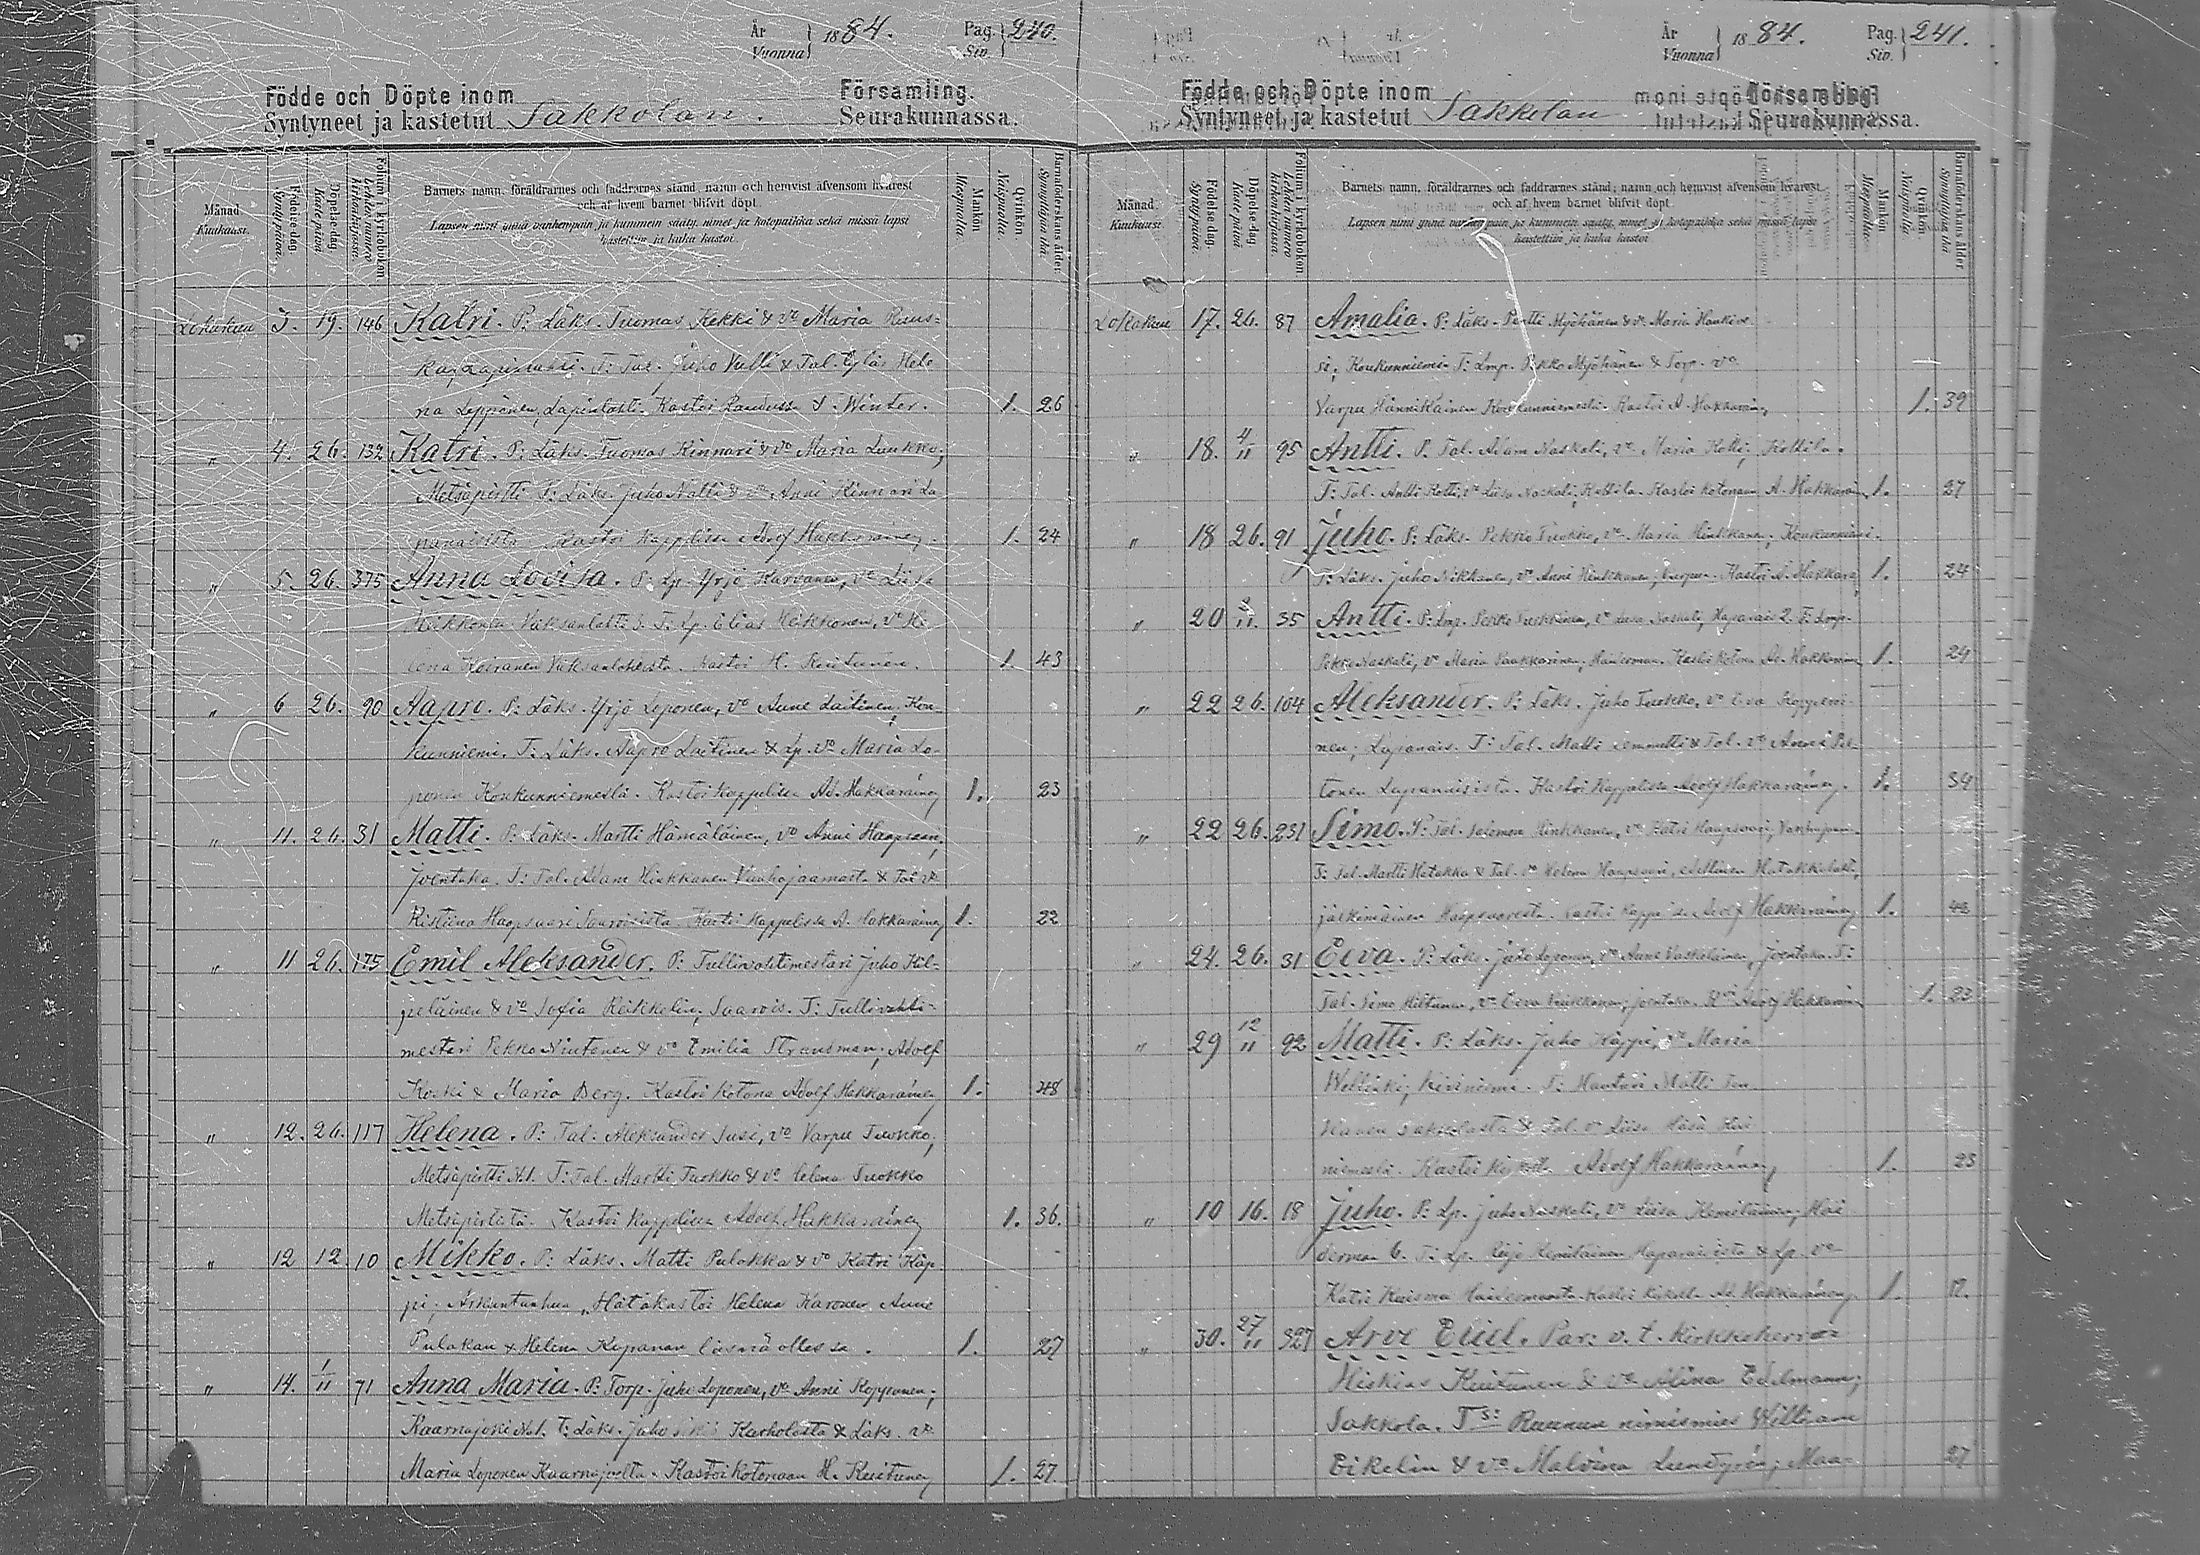 År Vuonna } 1884. Pag. Siv. } 240.
Födde och Döpte inom Församling.
Syntyneet ja kastetut Sakkolan. Seurakunnassa.
Månad. Kuukausi.
Födelse-dag. Syntypäivä.
Döpelse-dag. Kastepäivä.
Folium i kyrkoboken. Lehden numero kirkonkirjassa.
Barnets namn, föräldrarnes och faddrarnes stånd, namn och hemvist äfvensom hvarest
och af hvem barnet blifvit döpt.
Lapsen nimi ynnä vanhempain ja kummein sääty, nimet ja kotopaikka sekä missä lapsi
kastettiin ja kuka kastoi.
Mankön. Miespuolia.
Qvinkön. Naispuolia.
Barnaföderskans ålder. Synnyttäjän ikä
Lokakuu 3. 19. 146 Katri. P: Läks. Tuomas Kekki & vo Maria Ruus-
ka, Lapinlahti. T: Tal. Juho Valli & Tal. Hele-
na Leppänen, Lapinlahti. Kastoi Raudussa J. Winter. 1. 26
" 4. 26. 132 Katri. P: Läks. Tuomas Kinnari & vo Maria Luukko,
Metsäpirtti T: Läks. Juho Natti & vo Anni Kinnari La
panaisista. Kastoi Kappelissa Adolf Hakkarainen 1. 24
" 5. 26. 375 Anna Lovisa. P: Lp. Yrjö Karvanen, vo Liisa
Heikkonen Vuksanlahti T: Lp. Elias Heikkonen, vo He-
lena Koiranen Vuksanlahesta. Kastoi H. Kuitunen. 1. 43
" 6 26. 90 Aapro. P: Läks. Yrjö Loponen, vo Anne Laitinen, Kou-
kunniemi. T: Läks. Aapro Laitinen & Lp. vo Maria Lo-
ponen Koukunniemeslä. Kastoi Kappelissa Ad. Hakkarainen 1. 23
" 11. 26. 31 Matti. P: Läks. Martti Hämäläinen, vo Anni Haapsaar,
Joentaka. T: Tal. Adam Hinkkanen Vanhajaamasta & Tal vo
Kristiina Haapsaari Saaroisista. Kastoi Kappelissa A. Hakkarainen 1. 22
" 11 26. 175 Emil Aleksander. P: Tullivahtimestari Juho Kil-
peläinen & vo Sofia Reikkelin, Saarois. T: Tullivahti-
mestari Pekko Niutanen & vo Emilia Strausman, Adolf
Koski & Maria Berg. Kastoi Kotona Adolf Hakkarainen 1. 48
" 12. 26. 117 Helena. P: Tal: Aleksander Susi, vo Varpu Tuokko,
Metsäpirtti N:1. T: Tal. Martti Tuokko & vo Helena Tuokko
Metsäpirtitä. Kastoi Kappelissa Adolf Hakkarainen 1. 36.
" 12 12. 10 Mikko. P: Läks. Matti Pulakka & vo Katri Käp-
pi, Arkuntanhua, Hätäkastoi Helena Karonen Anne
Pulakan & Helena Kiparan läsnä ollessa. 1. 27
" 14. 1/11 71 Anna Maria. P: Torp. Juho Loponen, vo Anni Kopponen,
Kaarnajoki N:1. T: Läks. Juho Karholasta & Läks. vo
Maria Loponen Kaarnajoelta. Kastoi Kotonaan H. Kuitunen 1. 27
År Vuonna } 1884. Pag. Siv. } 241.
Födde och Döpte inom Församling.
Syntyneet ja kastetut Sakkolan Seurakunnassa.
Månad. Kuukausi.
Födelse-dag. Syntypäivä.
Döpelse-dag. Kastepäivä.
Folium i kyrkoboken. Lehden numero kirkonkirjassa.
Barnets namn, föräldrarnes och faddrarnes stånd, namn och hemvist äfvensom hvarest
och af hvem barnet blifvit döpt.
Lapsen nimi ynnä vanhempain ja kummein sääty, nimet ja kotopaikka sekä missä lapsi
kastettiin ja kuka kastoi
Mankön. Miespuolia.
Qvinkön. Naispuolia.
Barnaföderskans ålder. Synnyttäjän ikä
Lokakuu 17. 26. 87 Amalia. P: Läks. Pentti Myöhänen & vo Maria Haukive-
si, Koukunniemi T: Lmp. Pekko Myöhänen & Torp. vo
Varpu Hännikäinen Koukunniemeslä. Kastoi A. Hakkarain. 1. 39
" 18. 4/11 95 Antti. P: Tal. Adam Naskali, vo Maria Kotti, Kottila.
T: Tal. Antti Kotti, vo Liisa Naskali, Kottila. Kastoi Kotonaan A. Hakkarain 1. 27
" 18 26. 91 Juho. P: Läks. Pekko Tuokko, vo Maria Hinkkanen, Koukunniemi.
T: Läks. Juho Nikkanen, vo Anni Hinkkanen, Kastoi A. Hakkara 1. 24
" 20 2/11 35 Antti. P: Lmp. Pekko vo Naskali, Haparais 2. T: Lmp.
Pekko Naskali, vo Maria Vaakkarinen, Haiderman. Kastoi Kotona Ad. Hakkarainen 1. 29
" 22 26. 104 Aleksander. P: Läks. Juho Tuokko, vo Eva Kopperoi-
nen; Lapanais. T: Tal. Matti Lemmetti & Tal. vo Anni Pel-
tonen Lapanaisista. Kastoi Kappelissa Adolf Hakkarainen. 1. 34
" 22 26. 231 Simo. P: Tal. Salomon Hinkkanen, vo Katri Haapsaari, Vanhajaam.
T: Tal. Martti Hatakka & Tal. vo Helena Haapsaari, edellinen Hatakkalahti,
jälkimäinen Haapsaaresta. Kastoi Kappelissa Adolf Hakkarainen 1. 42
" 24. 26. 31 Eeva. P: Läks. Loponen, vo Anne Vaskelainen, Joentaka. T:
Tal. Simo Hiltunen, vo Eeva Joentaka. Adolf Hakkarain 1. 23
" 29 12/11 92 Matti. P: Läks. Juho Käppi, vo Maria
Kiviniemi. T: Hanturi Matti
Sakkolasta & Tal. vo Liisa Kivi
niemesta. Kastoi Adolf Hakkarainen 1. 23
" 10 16. 18 Juho. P: Lp. Juho Naskali, vo Liisa Kemiläinen, Hai
derman 6. T: Lp. Kemiläinen Haparaisista & Lp. vo
Katri Kuisma Haidermanista Kastoi Ad. Hakkarainen 1. 17.
" 30. 27/11 327 Arve Eliel. Par: v. t. Kirkkoherra
Hiskias Kuitunen & vo Alina Edelmann,
Sakkola. Ts: Ruunun nimismies William
Eikelin & vo Malvina Lundgrén, Maa- 27